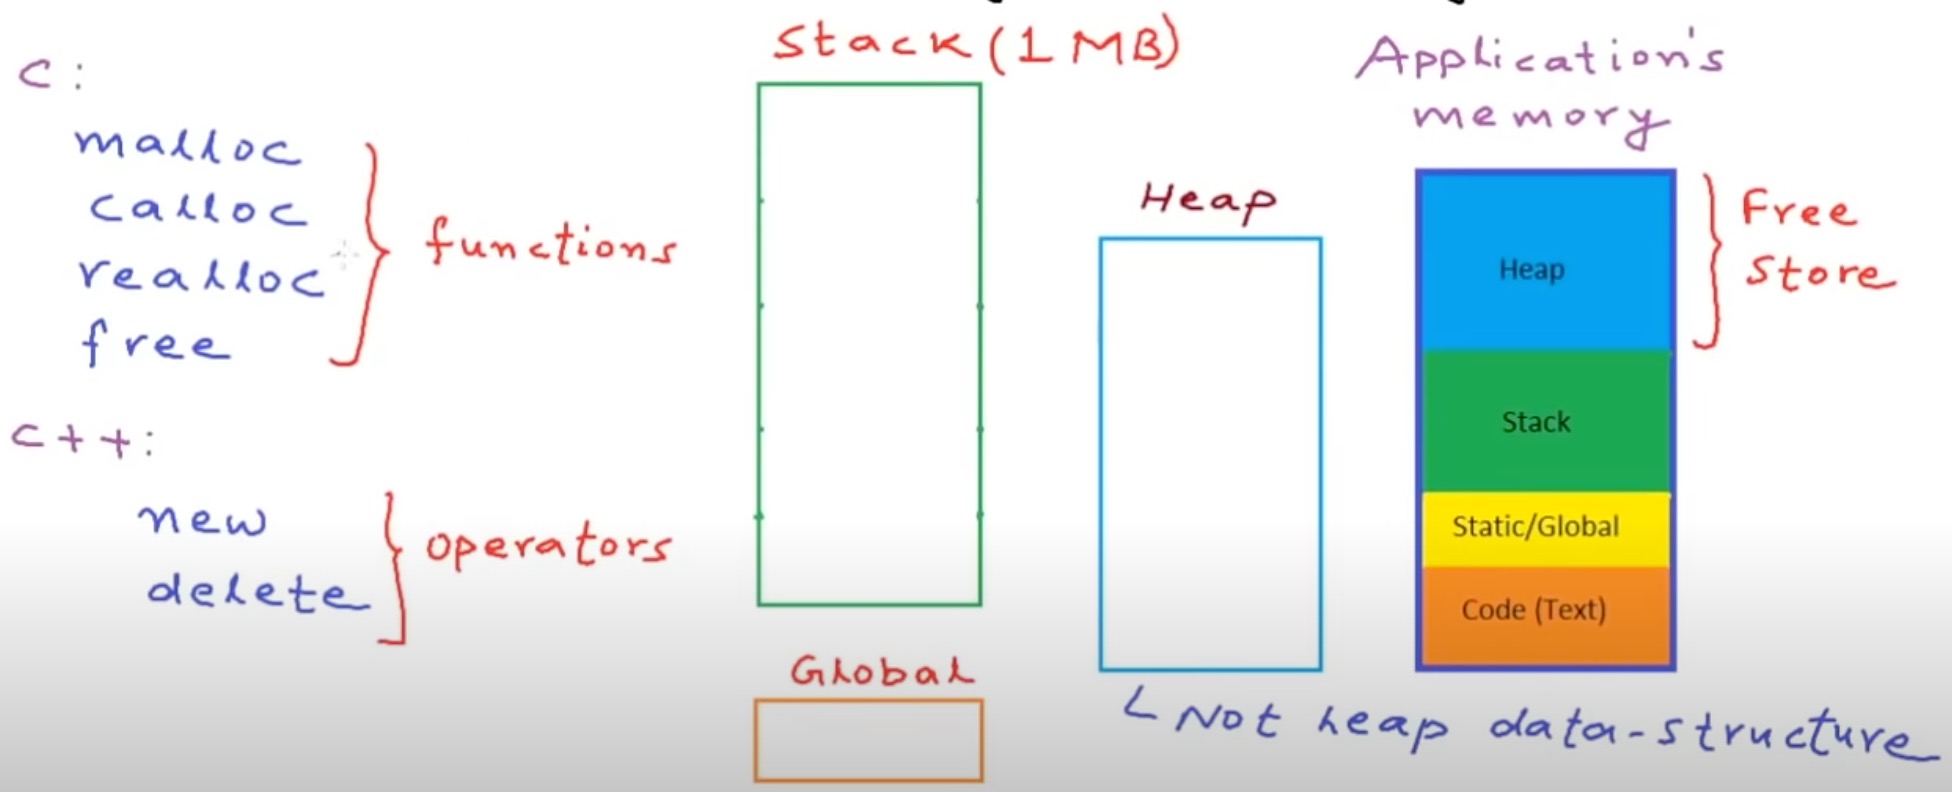 C:
malloc
calloc
realloc
free
functions
C++:
new
delete
operators
Stack (1 MB)
Global
Heap
Not heap data-structure
Application's
memory
Heap
Stack
Static/Global
Code (Text)
Free
Store